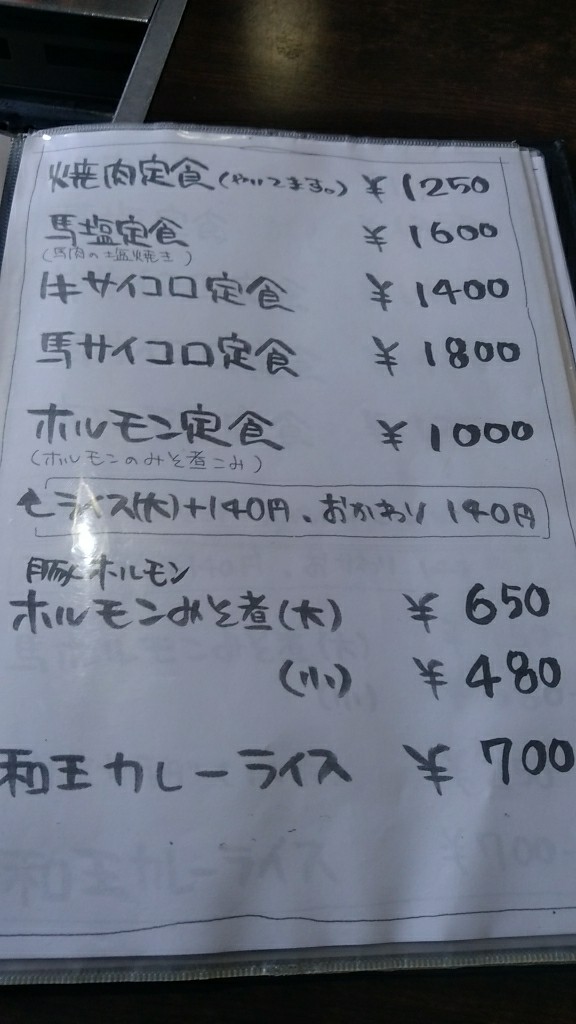 焼肉定食(やいてます。) ¥1250
馬塩定食 ¥1600
(馬肉の塩焼き)
牛サイコロ定食 ¥1400
馬サイコロ定食 ¥1800
ホルモン定食 ¥1000
(ホルモンのみそ煮こみ)
ライス(大)+140円、おかわり 140円
豚ホルモン
ホルモンみそ煮(大) ¥650
(小) ¥480
和王カレーライス ¥700